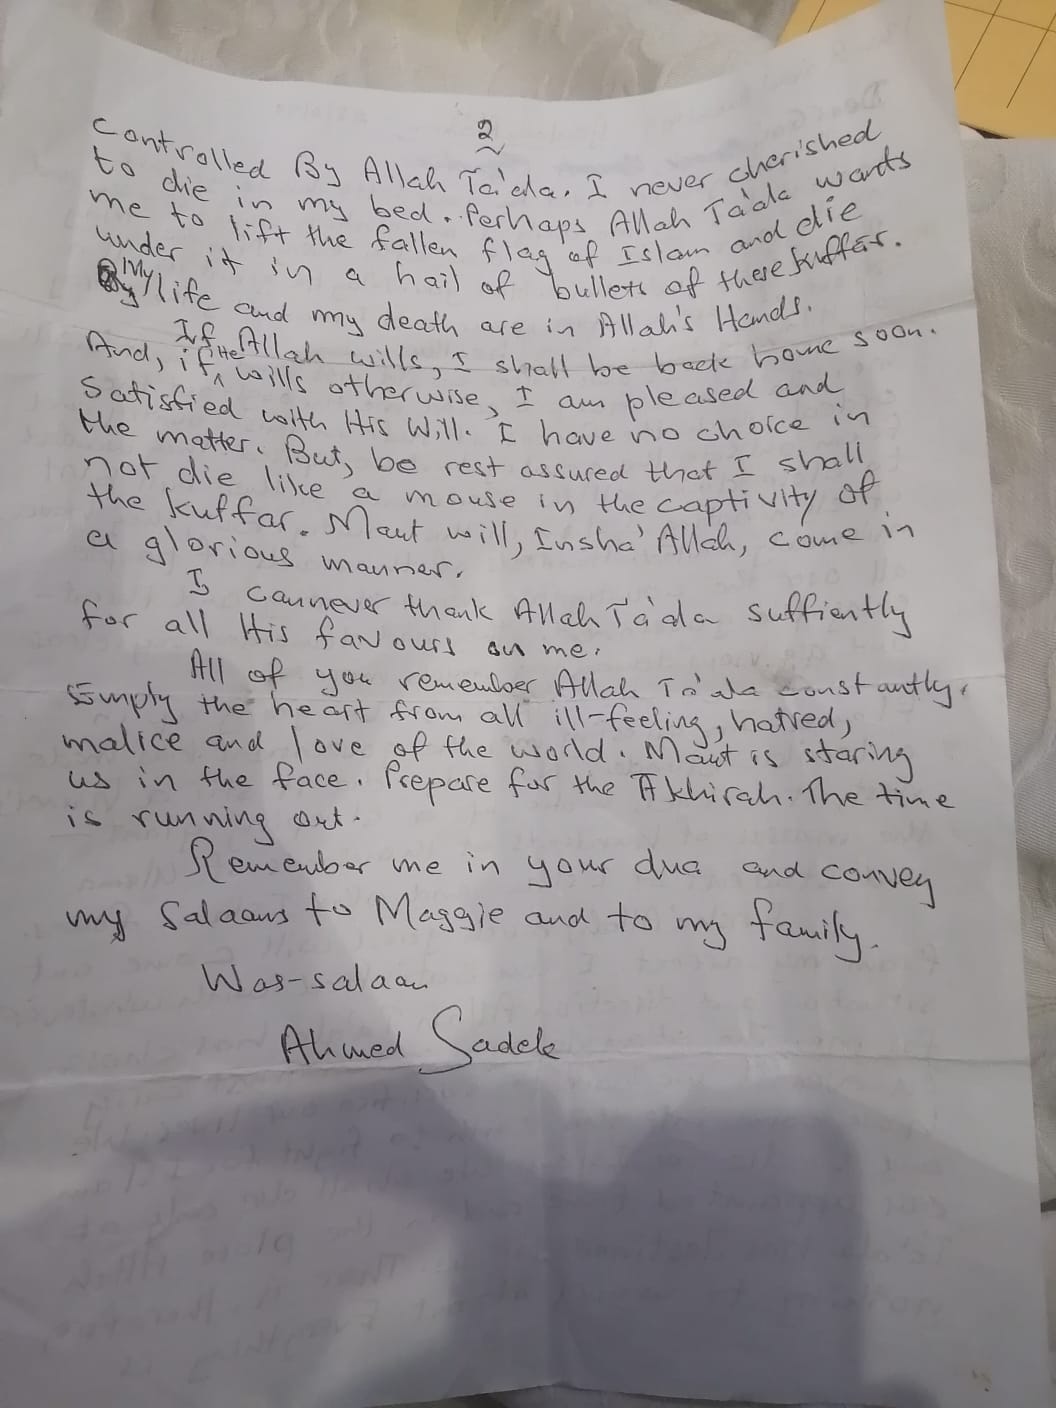 2
controlled By Allah Ta'ala. I never cherished
to die in my bed. Perhaps Allah Ta'ala wants
me to lift the fallen flag of Islam and die
under it in a hail of bullets of these kuffār.
My life and my death are in Allah's Hands.
If Allah wills, I shall be back home soon.
And, if He wills otherwise, I am pleased and
satisfied with His Will. I have no choice in
the matter. But, be rest assured that I shall
not die like a mouse in the captivity of
the kuffar. Maut will, Insha' Allah, come in
a glorious manner.
I cannever thank Allah Ta'ala suffiently
for all His favours on me.
All of you remember Allah Ta'ala constantly.
Empty the heart from all ill-feeling, hatred,
malice and love of the world. Maut is staring
us in the face. Prepare for the Ākhirah. The time
is running out.
Remember me in your dua and convey
my Salaams to Maggie and to my family.
Was-salaam
Ahmed Sadek